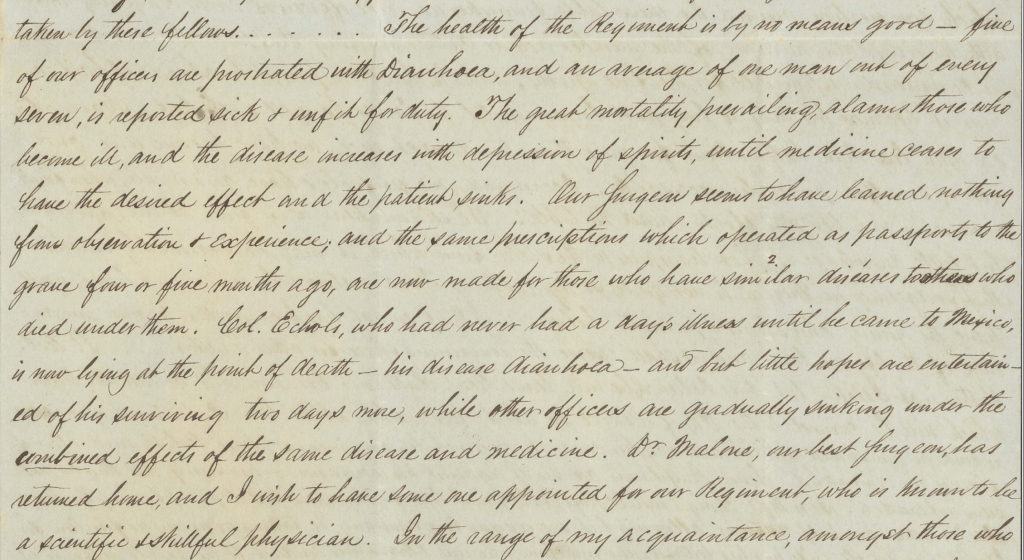 taken by these fellows. . . . . . . . The health of the Regiment is by no means good — five
of our officers are prostrated with Diarrhoea, and an average of one man out of every
seven, is reported sick & unfit for duty. The great mortality prevailing, alarms those who
become ill, and the disease increases with depression of spirits, until medicine ceases to
have the desired effect and the patient sinks. Our Surgeon seems to have learned nothing
from observation & experience; and the same prescriptions which operated as passports to the
grave four or five months ago, are now made for those who have similar diseases to others who
died under them. Col. Echols, who had never had a day's illness until he came to Mexico,
is now lying at the point of death — his disease diarrhoea — and but little hopes are entertain-
ed of his surviving two days more, while other officers are gradually sinking under the
combined effects of the same disease and medicine. Dr. Malone, our best Surgeon, has
returned home, and I wish to have some one appointed for our Regiment, who is known to be
a scientific & skillful physician. In the range of my acquaintance, amongst those who